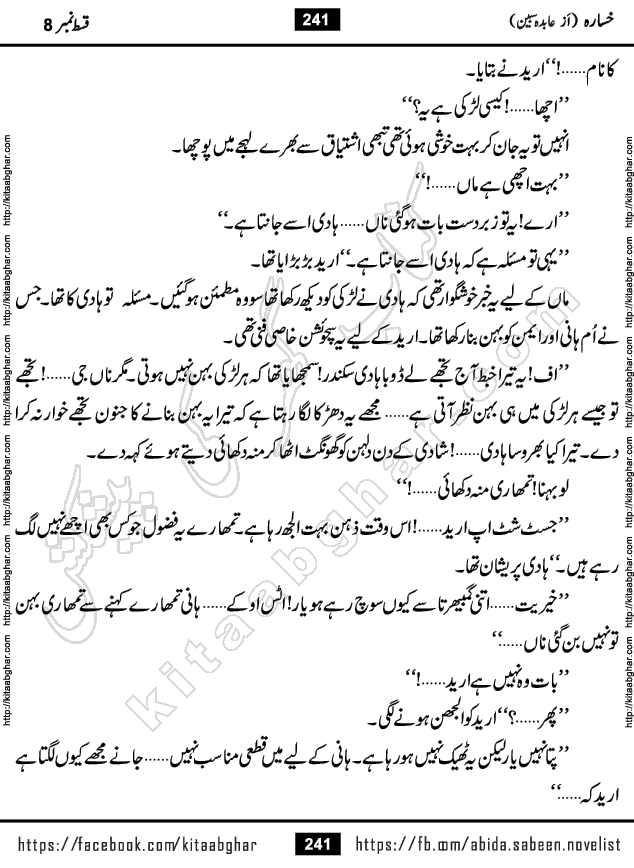 خسارہ (از عابدہ سبین) 241 قسط نمبر 8
کا نام......!‘‘ ارید نے بتایا۔
’’اچھا......! کیسی لڑکی ہے یہ؟‘‘
انہیں تو یہ جان کر بہت خوشی ہوئی تھی تبھی اشتیاق سے بھرے لہجے میں پوچھا۔
’’بہت اچھی ہے ماں......!‘‘
’’ارے! یہ تو زبردست بات ہو گئی ناں...... ہادی اسے جانتا ہے۔‘‘
’’یہی تو مسئلہ ہے کہ ہادی اسے جانتا ہے۔‘‘ ارید بڑبڑایا تھا۔
ماں کے لیے یہ خبر خوشگوار تھی کہ ہادی نے لڑکی کو دیکھ رکھا تھا سو وہ مطمئن ہو گئیں۔ مسئلہ تو ہادی کا تھا۔ جس
نے اُم ہانی اور ایمن کو بہن بنا رکھا تھا۔ ارید کے لیے یہ سچوئشن خاصی فنی تھی۔
’’اف! یہ تیرا خبط آج تجھے لے ڈوبا ہادی سکندر! سمجھایا تھا کہ ہر لڑکی بہن نہیں ہوتی۔ مگر ناں جی......! تجھے
تو جیسے ہر لڑکی میں ہی بہن نظر آتی ہے...... مجھے یہ دھڑکا لگا رہتا ہے کہ تیرا یہ بہن بنانے کا جنون تجھے خوار نہ کرا
دے۔ تیرا کیا بھروسا ہادی......! شادی کے دن دلہن کو گھونگٹ اٹھا کر منہ دکھائی دیتے ہوئے کہہ دے۔
لو بہنا! تمھاری منہ دکھائی......!‘‘
’’جسٹ شٹ اپ ارید......! اس وقت ذہن بہت الجھ رہا ہے۔ تمھارے یہ فضول جوکس بھی اچھے نہیں لگ
رہے ہیں۔‘‘ ہادی پریشان تھا۔
’’خیریت...... اتنی گمبھیرتا سے کیوں سوچ رہے ہو یار! اٹس اوکے...... ہانی تمھارے کہنے سے تمھاری بہن
تو نہیں بن گئی ناں......‘‘
’’بات وہ نہیں ہے ارید......!‘‘
’’پھر......؟‘‘ ارید کو الجھن ہونے لگی۔
’’پتا نہیں یار لیکن یہ ٹھیک نہیں ہو رہا ہے۔ ہانی کے لیے میں قطعی مناسب نہیں...... جانے مجھے کیوں لگتا ہے
ارید کہ......‘‘
https://facebook.com/kitaabghar 241 https://fb.com/abida.sabeen.novelist
http://kitaabghar.com http://kitaabghar.com http://kitaabghar.com http://kitaabghar.com http://kitaabghar.com http://kitaabghar.com
http://kitaabghar.com http://kitaabghar.com http://kitaabghar.com http://kitaabghar.com http://kitaabghar.com
کتاب گھر کی پیشکش
kitaabghar.com